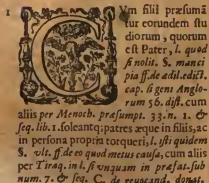 1 CVm filii præsumã
tur eorundem stu
diorum, quorum
est Pater, l. quod
si nolit. S. manci
pia ff. de ædil. edict.
cap. si gens Anglo-
rum 56. dist. cum
aliis per Menoch. præsumpt. 33. n. 1. &
seq. lib. 1. soleantq; patres æque in filiis, ac
in persona propria torqueri, l. isti quidem
S. vlt. ff. de eo quod metus causa, cum aliis
per Tiraq. in l. si vnquam in præfat. sub
num. 7. & seq. C. de reuocand. donat.